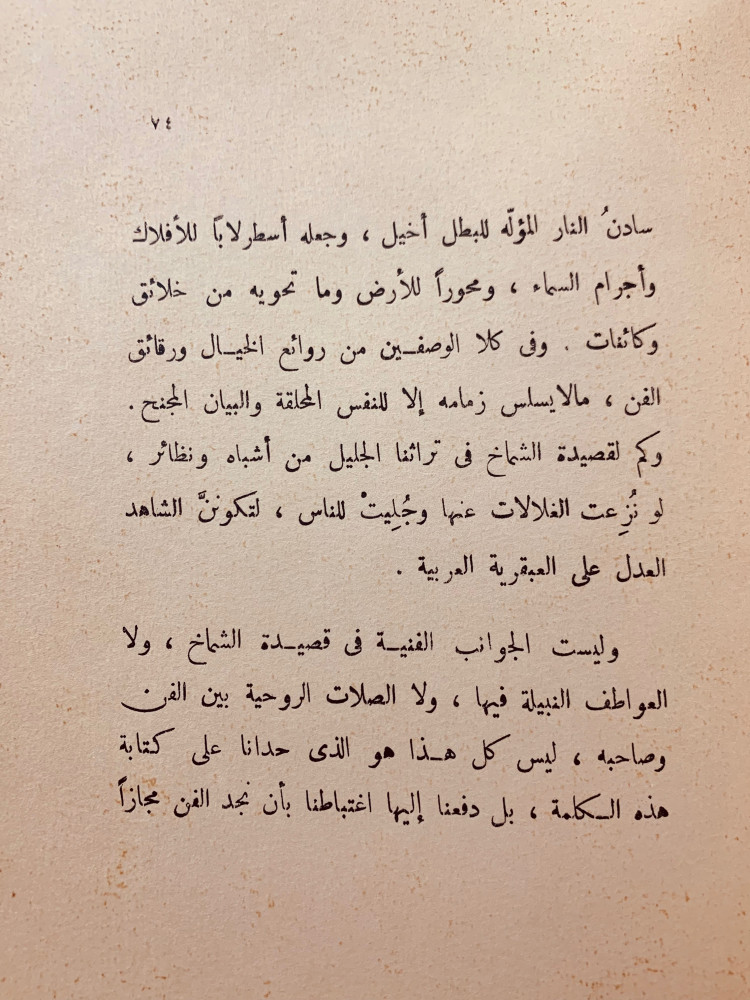 ٧٤
سادنُ النار المؤلّه للبطل أخيل ، وجعله أسطرلاباً للأفلاك
وأجرام السماء ، ومحوراً للأرض وما تحويه من خلائق
وكائنات . وفى كلا الوصفــين من روائع الخيــال ورقائق
الفن ، مالايسلس زمامه إلا للنفس المحلقة والبيان المجنح .
وكم لقصيدة الشماخ فى تراثنا الجليل من أشباه ونظائر ،
لو نُزِعت الغلالات عنها وجُلِيتْ للناس ، لتكوننَّ الشاهد
العدل على العبقرية العربية .
وليست الجوانب الفنيــة فى قصيــدة الشماخ ، ولا
العواطف النبيلة فيها ، ولا الصلات الروحية بين الفن
وصاحبه ، ليس كل هــذا هو الذى حدانا على كتابة
هذه الــكلمة ، بل دفعنا إليها اغتباطنا بأن نجد الفن مجازاً